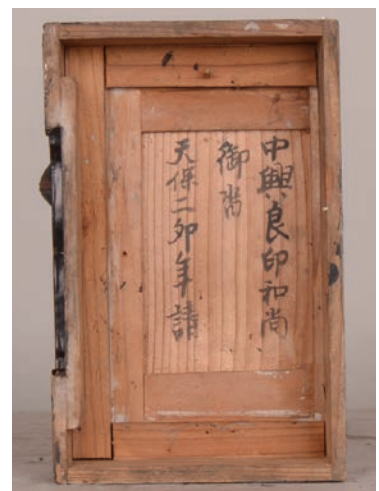 中興良印和尚
御厨
天保二卯年請